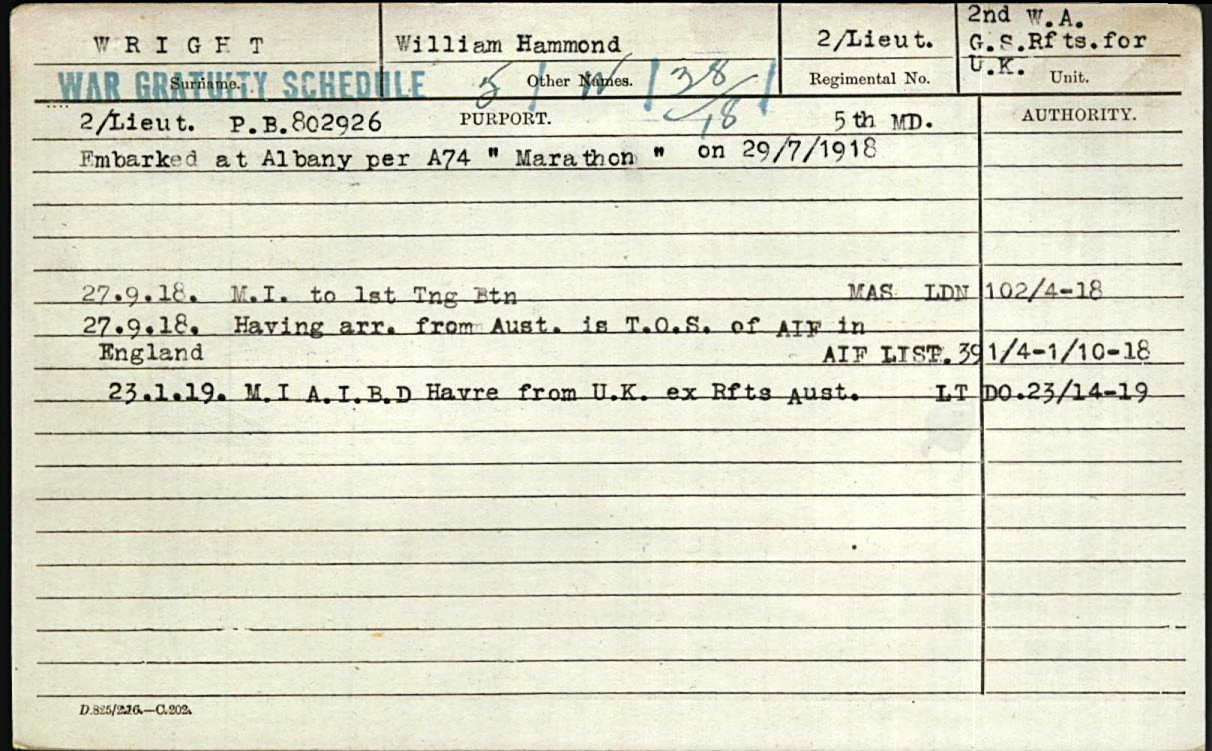 WRIGHT William Hammond 2/Lieut. 2nd W.A.
G.S.Rfts.for
U.K.
Surname. Other Names. Regimental No. Unit.
WAR GRATUITY SCHEDULE 5 / W / 38/18 /
2/Lieut. P.B.802926 PURPORT. 5th MD. AUTHORITY.
Embarked at Albany per A74 " Marathon " on 29/7/1918
27.9.18. M.I. to 1st Tng Btn MAS LDN 102/4-18
27.9.18. Having arr. from Aust. is T.O.S. of AIF in
England AIF LIST. 391/4-1/10-18
23.1.19. M.I A.I.B.D Havre from U.K. ex Rfts Aust. LT DO.23/14-19
D.825/2.16.—C.202.